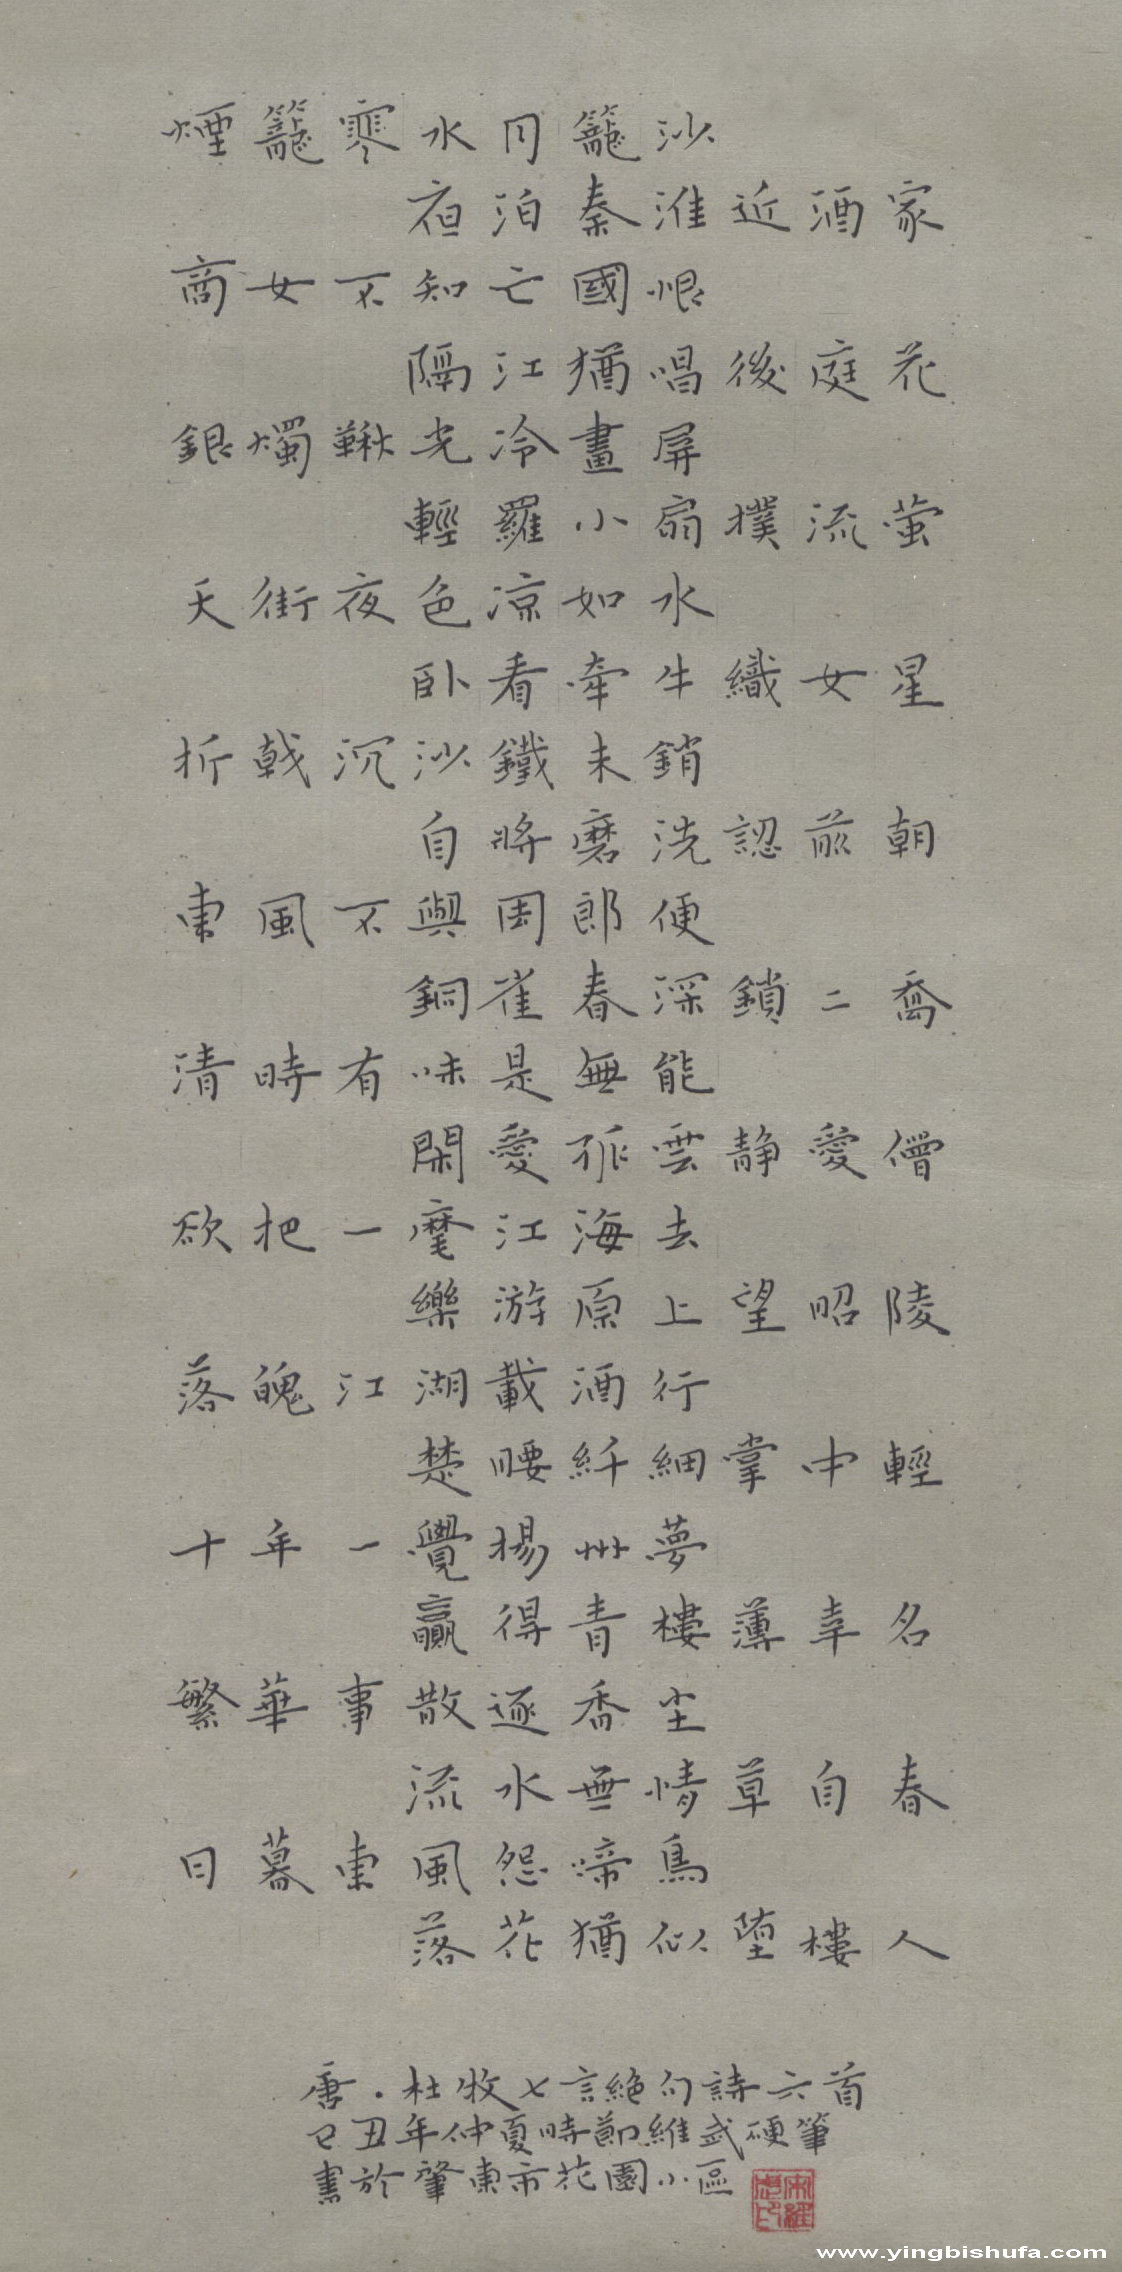 煙籠寒水月籠沙
夜泊秦淮近酒家
商女不知亡國恨
隔江猶唱後庭花
銀燭鞦光冷畫屏
輕羅小扇撲流螢
天街夜色涼如水
卧看牽牛織女星
折戟沉沙鐵未銷
自將磨洗認前朝
東風不與周郎便
銅雀春深鎖二喬
清時有味是無能
閑愛孤雲静愛僧
欲把一麾江海去
樂游原上望昭陵
落魄江湖載酒行
楚腰纤細掌中輕
十年一覺楊州夢
贏得青樓薄幸名
繁華事散逐香尘
流水無情草自春
日暮東風怨啼鳥
落花猶似堕樓人
唐．杜牧七言絕句詩六首
己丑年仲夏時節維武硬筆
書於肇東市花園小區
www.yingbishufa.com